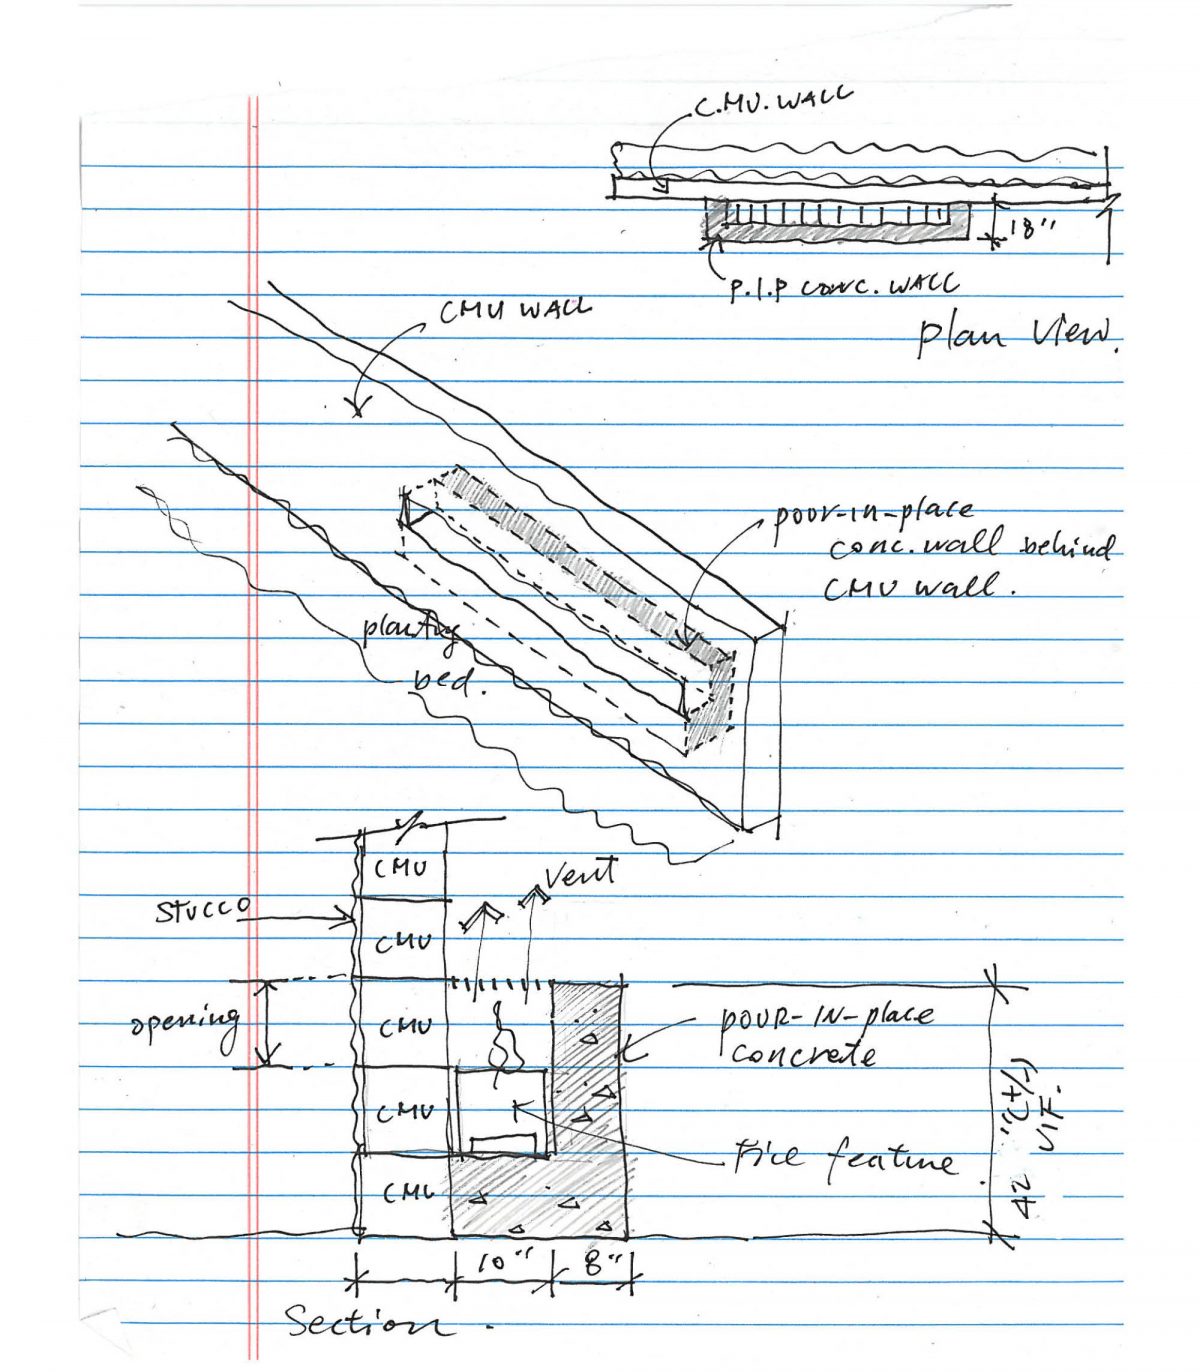 C.MU.WALL
18"
P.I.P CONC. WALL
Plan View.
CMU WALL
pour-in-place
conc. wall behind
CMU wall.
planting
bed.
CMU
Vent
STUCCO
CMU
opening
CMU
POUR-IN-place
concrete
CMU
Fire feature
42 "(+/-)
VIF.
CMU
10" 8"
Section.